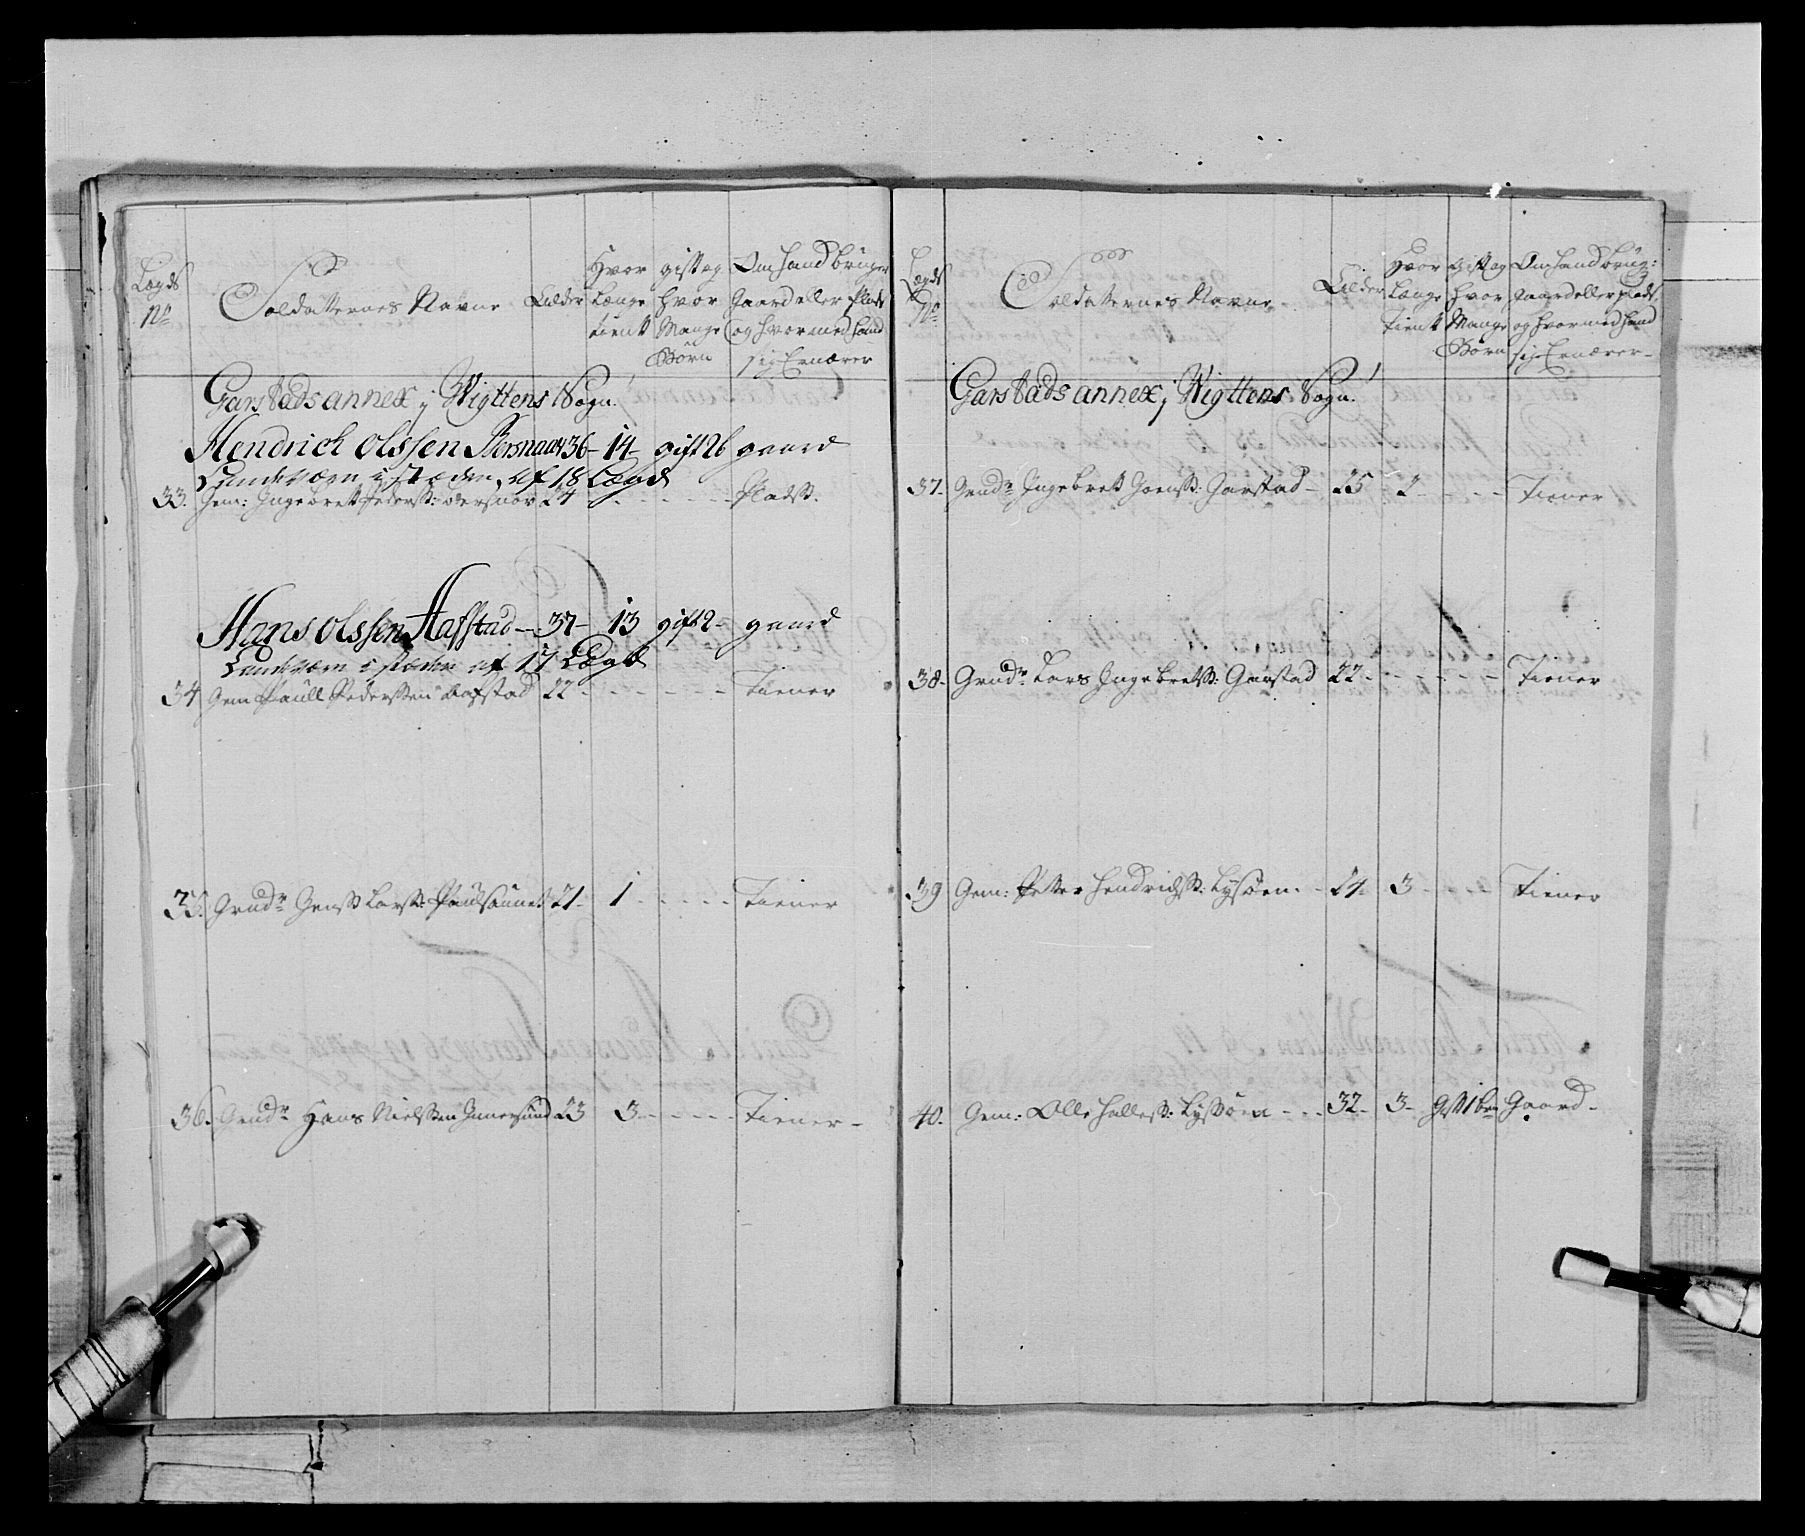 Lægds No
Soldatternes Navne
Alder
Hvor Længe tient
gift og hvor Mange Børn
Om hand bruger Gaard eller Plads og hvormed hand sig Ernærer
Garstads annex i Wigttens Sogn
Hendrich Olssen 36 - 14 - gift 2b gaard
Landværn i stæden af 18 Lægd
33. Gem: Ingebret Pederss: 24 - - - - Plads.
Hans Olssen Aafstad - 37 - 13 gift 2 - gaard
Landværn i stæden af 17 Lægd
34 Gem Paull Pederssen Aafstad 22 - - - - - Tiener
35. Grudr Jenss Larss: 21 - 1 - - - - Tiener
36. Grudr Hans Nielssen 23 3 - - - - Tiener -
Lægds No
Soldatternes Navne
Alder
Hvor Længe Tient
Gift og hvor Mange Børn
Om hand brug: Gaard eller plads, og hvormed hand sig Ernærer -
Garstads annex i Wigttens Sogn
37. Grudr Ingebret Jenss: Garstad - 25 2 - - - Tiener
38. Grudr Lars Ingebretss: Garstad 22 - - - - - Tiener
39 Gem: Petter Hendrichss: Lyssøen. - 24 - 3 - - - Tiener
40. Gem: Olle Halless: Lyssøen - - - 32 - 3 - gift 1 bn Gaard -